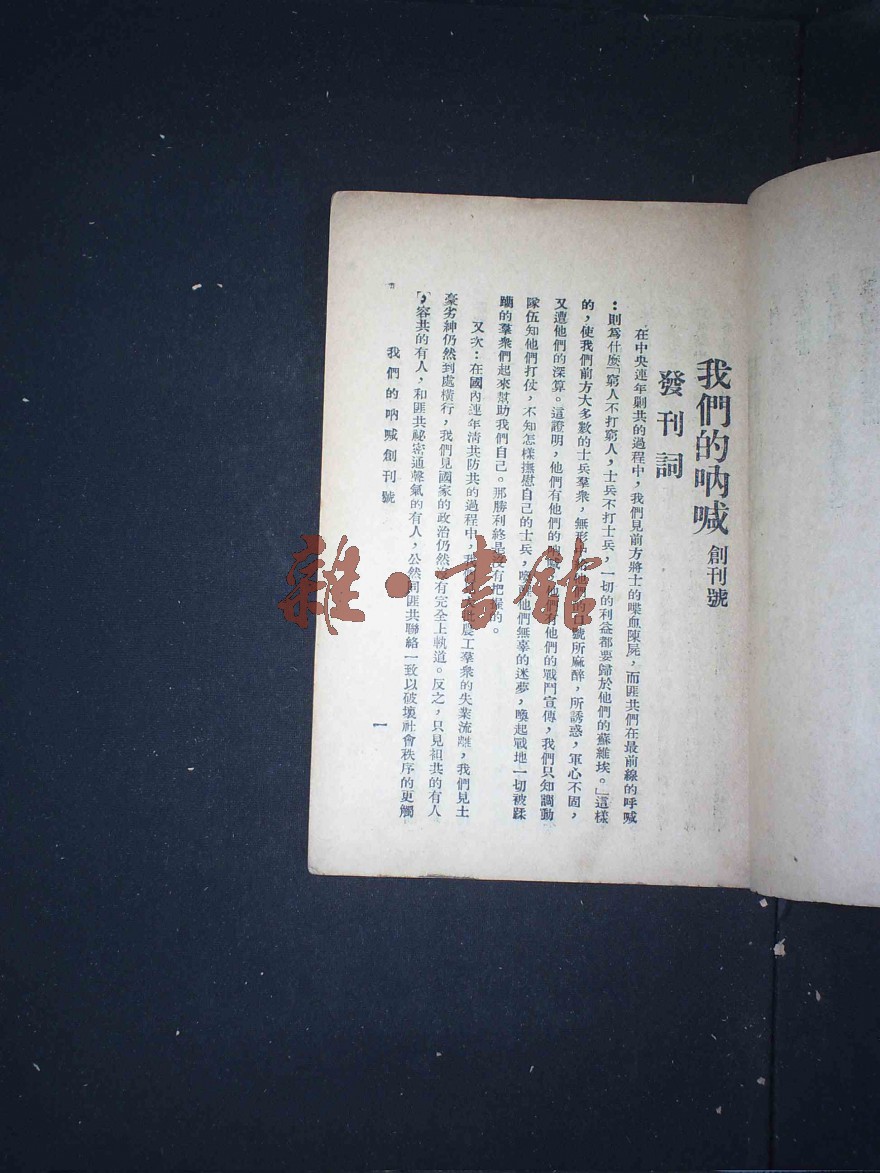 我們的吶喊 創刊號
發刊詞
在中央連年剿共的過程中，我們見前方將士的喋血陳屍，而匪共們在最前線的呼喊
：則爲什麼「窮人不打窮人，士兵不打士兵，一切的利益都要歸於他們的蘇維埃。」這樣
的，使我們前方大多數的士兵羣衆，無形 他們的口號所麻醉，所誘惑，軍心不固，
又遭他們的深算。這證明，他們有他們的 他們有他們的戰鬥宣傳，我們只知調動
隊伍知他們打仗，不知怎樣撫慰自己的士兵，喚 他們無辜的迷夢，喚起戰地一切被蹂
躪的羣衆們起來幫助我們自己。那勝利終是沒有把握的。
又次：在國內連年清共防共的過程中，我 農工羣衆的失業流離，我們見土
豪劣紳仍然到處橫行，我們見國家的政治仍然沒有完全上軌道。反之，只見袒共的有人
，容共的有人，和匪共祕密通聲氣的有人，公然同匪共聯絡一致以破壞社會秩序的更觸
我們的吶喊創刊號
一
雜·書館